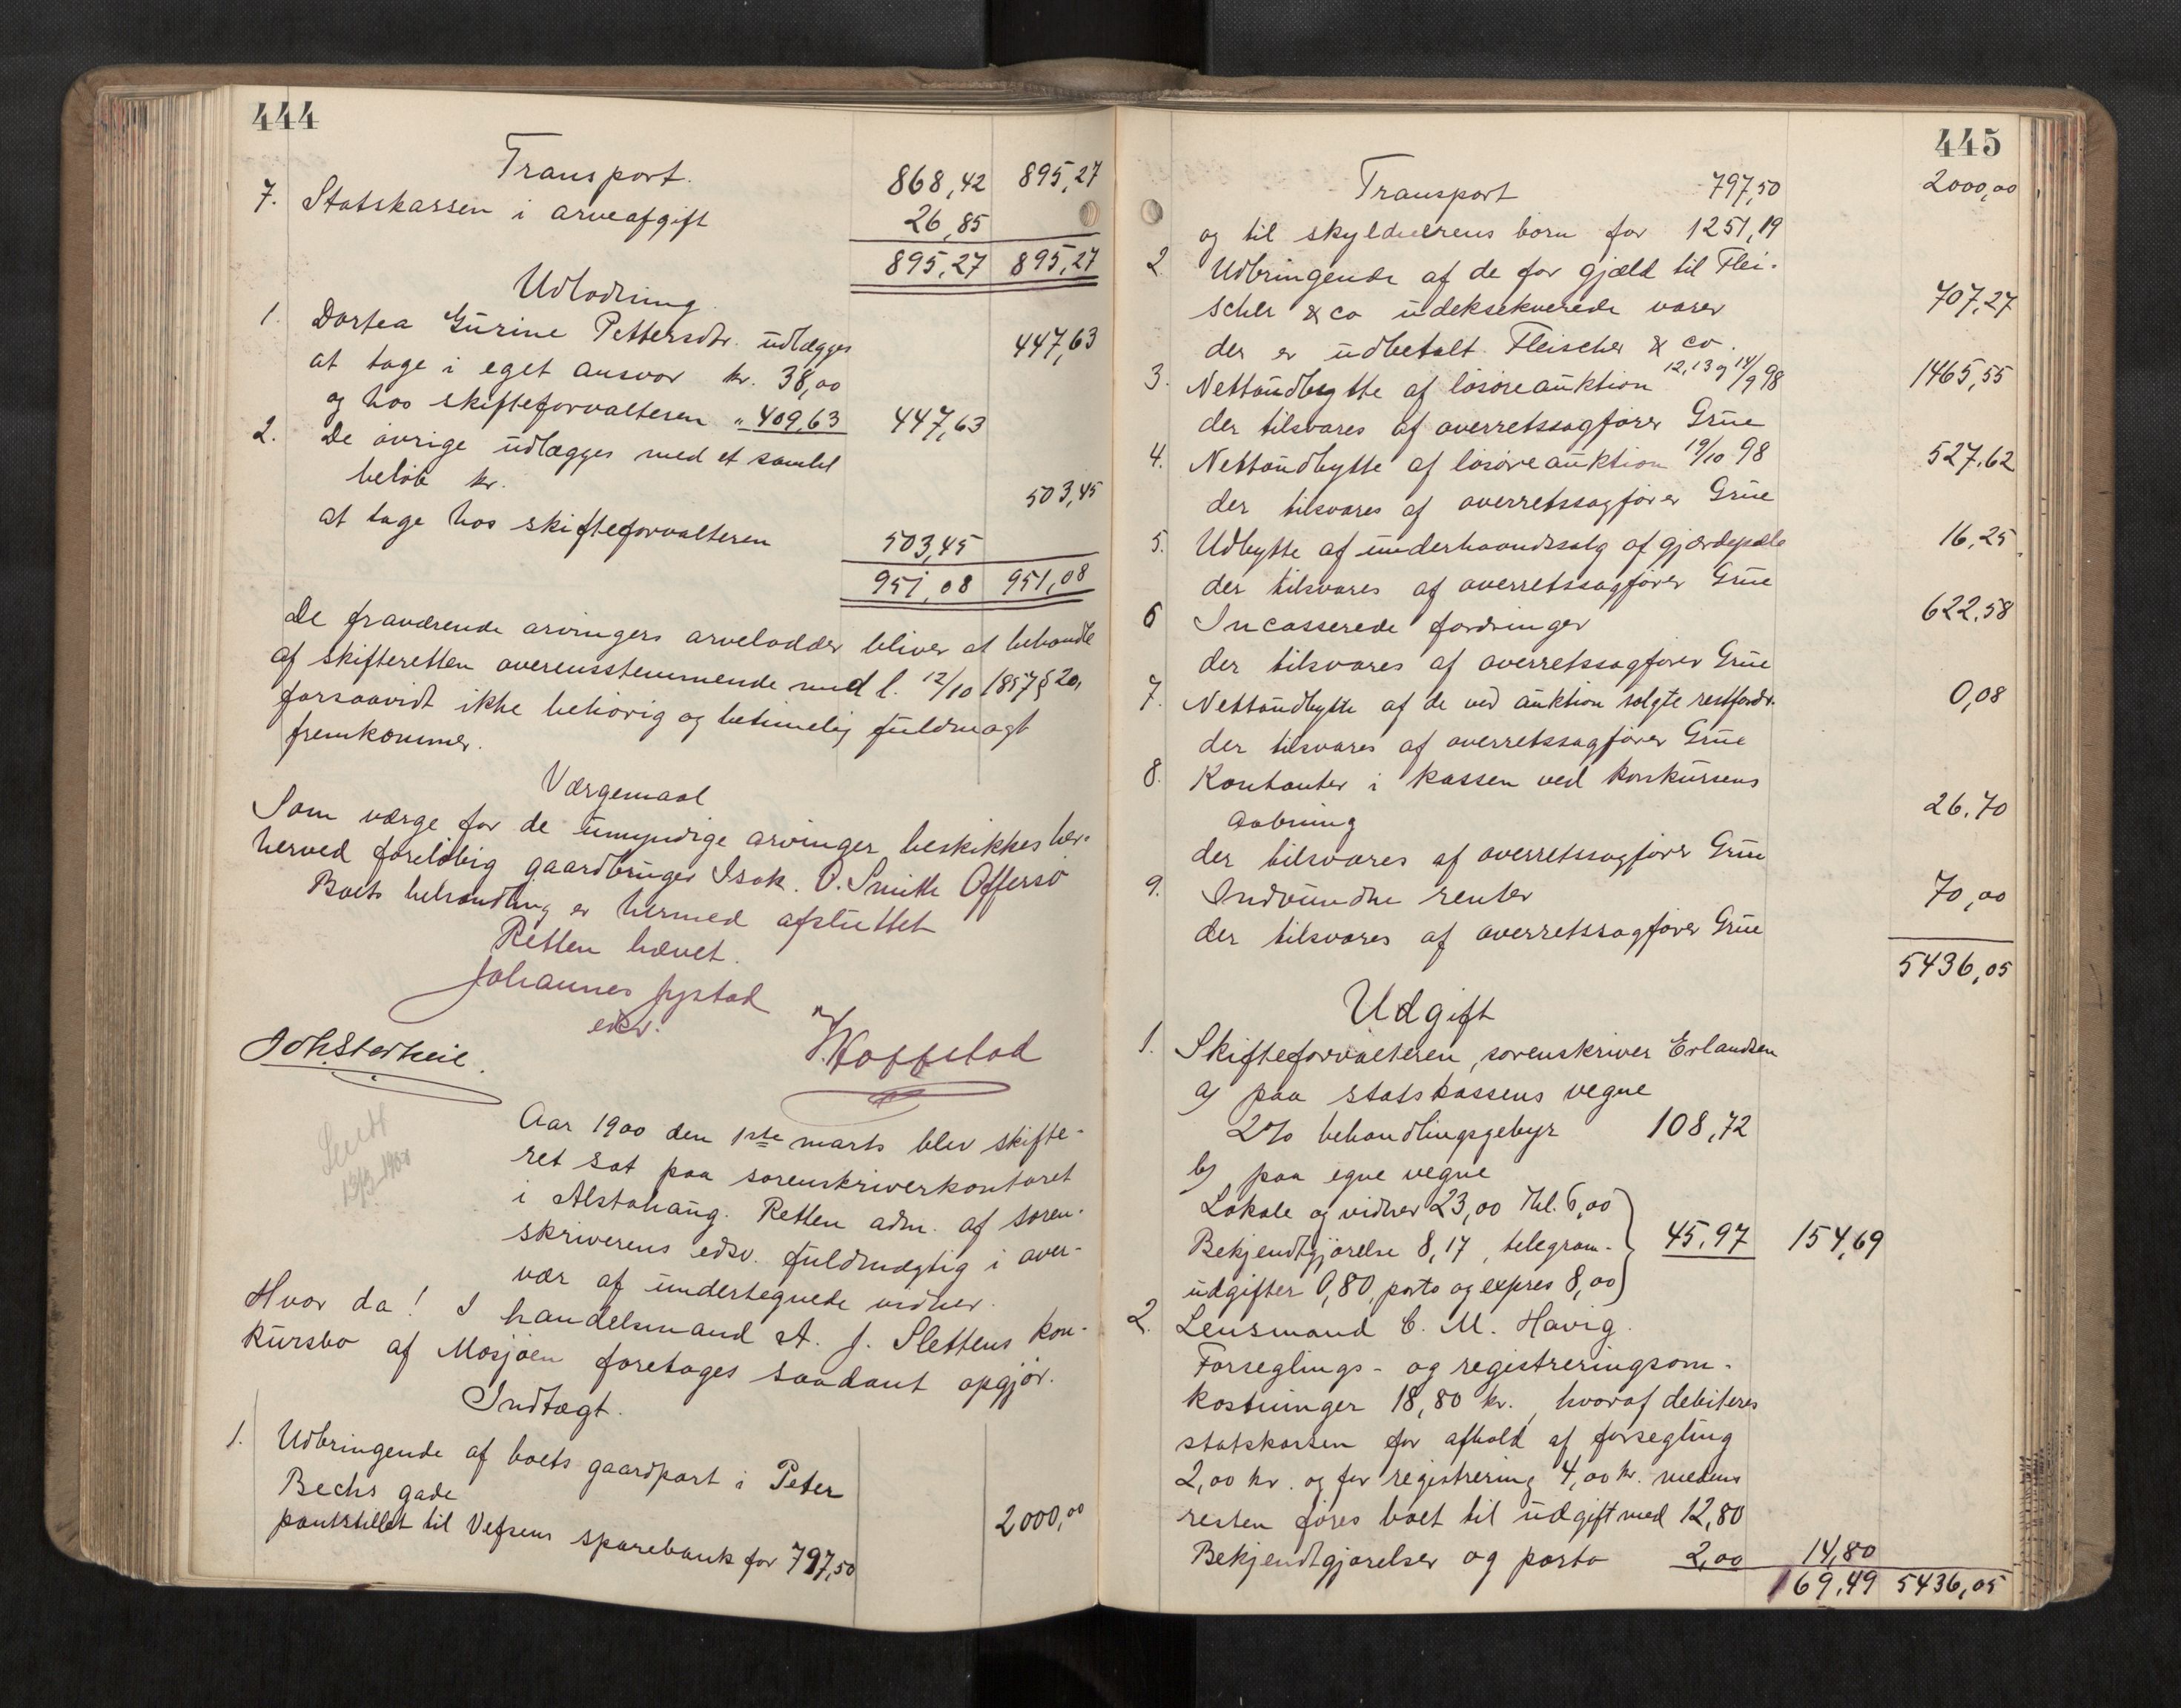 444
Transport. 868,42 895,27
7. Statskassen i arveafgift 26,85
895,27 895,27
Udlodning
1. Dortea Gurine Pettersdtr. udlægges 447,63
at tage i eget ansvar kr. 38,00
og hos skifteforvalteren " 409,63 447,63
2. De øvrige udlægges med et samlet
beløb kr. 503,45
at tage hos skifteforvalteren 503,45
951,08 951,08
De fraværende arvingers arvelodder bliver at behandle
af skifteretten overensstemmende med l. 12/10 1857 § 20,
forsaavidt ikke behørig og betimelig fuldmagt
fremkommer.
Værgemaal
Som værge for de umyndige arvinger beskikkes her-
herved foreløbig gaardbruger Isak. O. Smith Offersø
Boets behandling er hermed afsluttet
Retten hævet.
Johannes Jystad
edsv.
Joh. Storheil. Hoffstad
13/3-1900
Aar 1900 den 1ste marts blev skifte-
ret sat paa sorenskriverkontoret
i Alstahaug. Retten adm. af soren-
skriverens edsv. fuldmægtig i over-
vær af undertegnede vidner.
Hvor da! I handelsmand A. J. Slettens kon-
kursbo af Mosjøen foretages saadant opgjør.
Indtægt.
1. Udbringende af boets gaardpart i Peter
Bechs gade 2000,00
pantstillet til Vefsens sparebank for 797,50
445
Transport 797,50 2000,00
og til skyldnerens børn for 1251,19
2 Udbringende af de for gjæld til Flei-
scher & co udeksekverede varer 707,27
der er udbetalt Fleischer & co.
3. Nettoudbytte af løsøreauktion 12, 13 og 14/9 98 1465,55
der tilsvares af overretssagfører Grue
4. Nettoudbytte af løsøreauktion 19/10 98 527,62
der tilsvares af overretssagfører Grue
5. Udbytte af underhaandssalg af gjærdepæle 16,25
der tilsvares af overretssagfører Grue
6 Incasserede fordringer 622,58
der tilsvares af overretssagfører Grue
7. Nettoudbytte af de ved auktion solgte restfordr. 0,08
der tilsvares af overretssagfører Grue
8. Kontanter i kassen ved konkursens
aabning 26,70
der tilsvares af overretssagfører Grue
9. Indvundne renter 70,00
der tilsvares af overretssagfører Grue
5436,05
Udgift
1. Skifteforvalteren, sorenskriver Erlandsen
a) paa statskassens vegne
2% behandlingsgebyr 108,72
b) paa egne vegne
Lokale og vidner 23,00 Thl. 6,00
Bekjendtgjørelse 8,17, telegram- 45,97 154,69
udgifter 0,80, porto og expres 8,00
2. Lensmand C. M. Havig.
Forseglings- og registreringsom-
kostninger 18,80 kr., hvoraf debiteres
statskassen for afhold af forsegling
2,00 kr. og for registrering 4,00 kr. medens
resten føres boet til udgift med 12,80
Bekjendtgjørelser og porto 2,00 14,80
169,49 5436,05